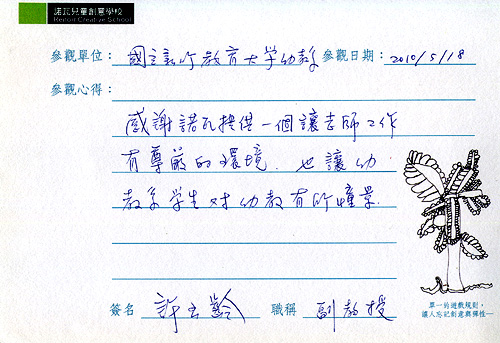 諾瓦兒童創意學校
Renoir Creative School
參觀單位：國立新竹教育大学幼教系 參觀日期：2010/5/18
參觀心得：
感謝諾瓦提供一個讓老師工作
有尊嚴的環境. 也讓幼
教系学生对幼教有所憧景.
簽名 許玉齡 職稱 副教授
單一的遊戲規則，
讓人忘記創意與彈性—